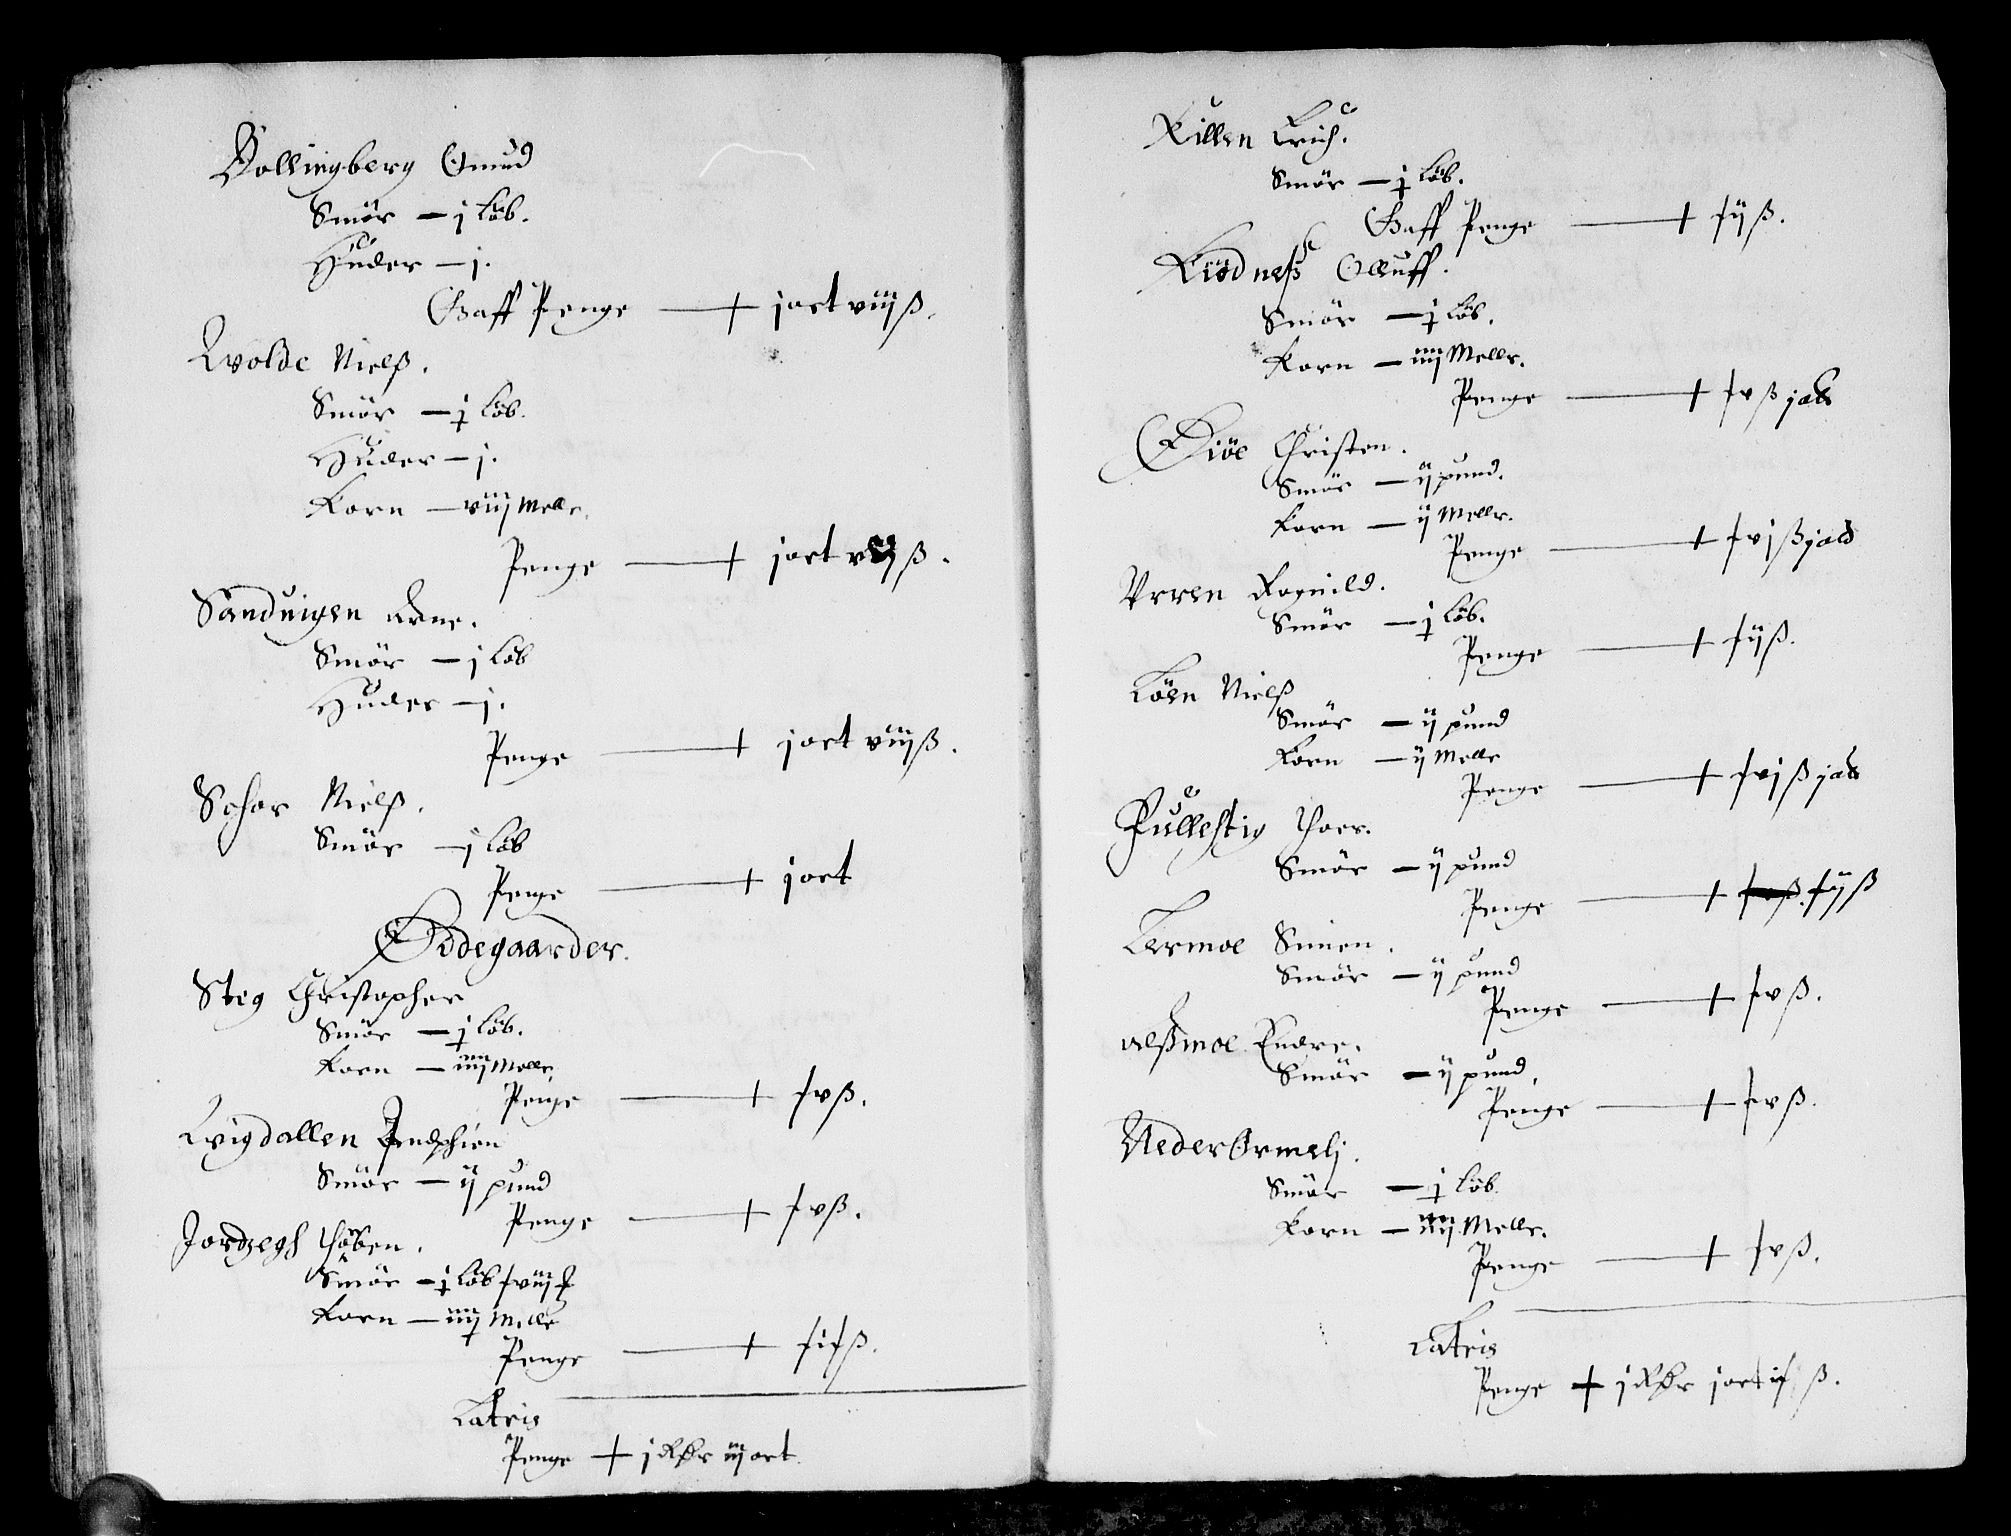 Bollingberg Omund
Smör — j löb.
Huder — j.
Gaff Penge — + jort viijß.
Qvolde Nielß.
Smör — j löb.
Huder — j.
Korn — viij Melle.
Penge — + jort ß.
Sanduigen Arne.
Smör — j löb
Huder — j.
Penge — + jort viijß.
Schor Nielß.
Smör — j löb
Penge — + jort
Ödegaarder.
Steg Christopher
Smör — j löb.
Korn — iiij Melle.
Penge — + fvß.
Qvigdallen
Smör — ij pund
Penge — + fvß.
Smör — j löb
Korn — iiij Melle
Penge — + ß.
Latris
Penge + j Rdr iij ort.
Killen Erich.
Smör — j löb.
Gaff Penge — + fijß.
Kiödneß Olluff.
Smör — j löb.
Korn — iiij Melle.
Penge — + fvß
Öiöe Christen.
Smör — ij pund.
Korn — ij Melle.
Penge — + fvjß
Vrren Ragnild.
Smör — j löb.
Penge — + fijß.
Löen Nielß
Smör — ij pund
Korn — ij Melle
Penge — + fvjß
Fullestig Joer.
Smör — ij pund
Penge — + fijß
Lermoe Simen.
Smör — ij pund
Penge — + fvß.
Endre.
Smör — ij pund.
Penge — + fvß.
Neder Ormelj.
Smör — j löb.
Korn — iiij Melle.
Penge — + fvß.
Latris
Penge + j Rdr jort ß.